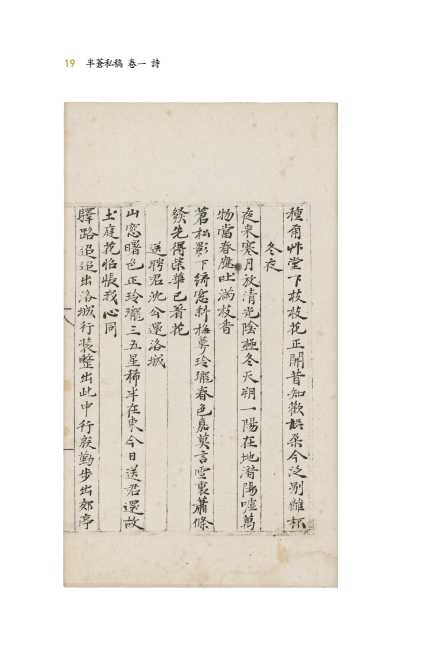 19 半蒼私稿 卷一 詩
種爾艸堂下枝枝花正開昔知歡娛桒今泛別離杯
冬夜
夜来寒月放清光陰極冬天朔一陽在地潜陽噓萬
物當春應吐滿枝香
蒼松影下綺窓新梅夢玲瓏春色嘉莫言雪裏蕭條
發先得榮華已著花
送聘君沈公還洛城
山窓曙色正玲瓏三五星稀半在東今日送君還故
土庭花怊悵我心同
驛路迢迢出洛城行装整出此中行殷勤步出郊亭